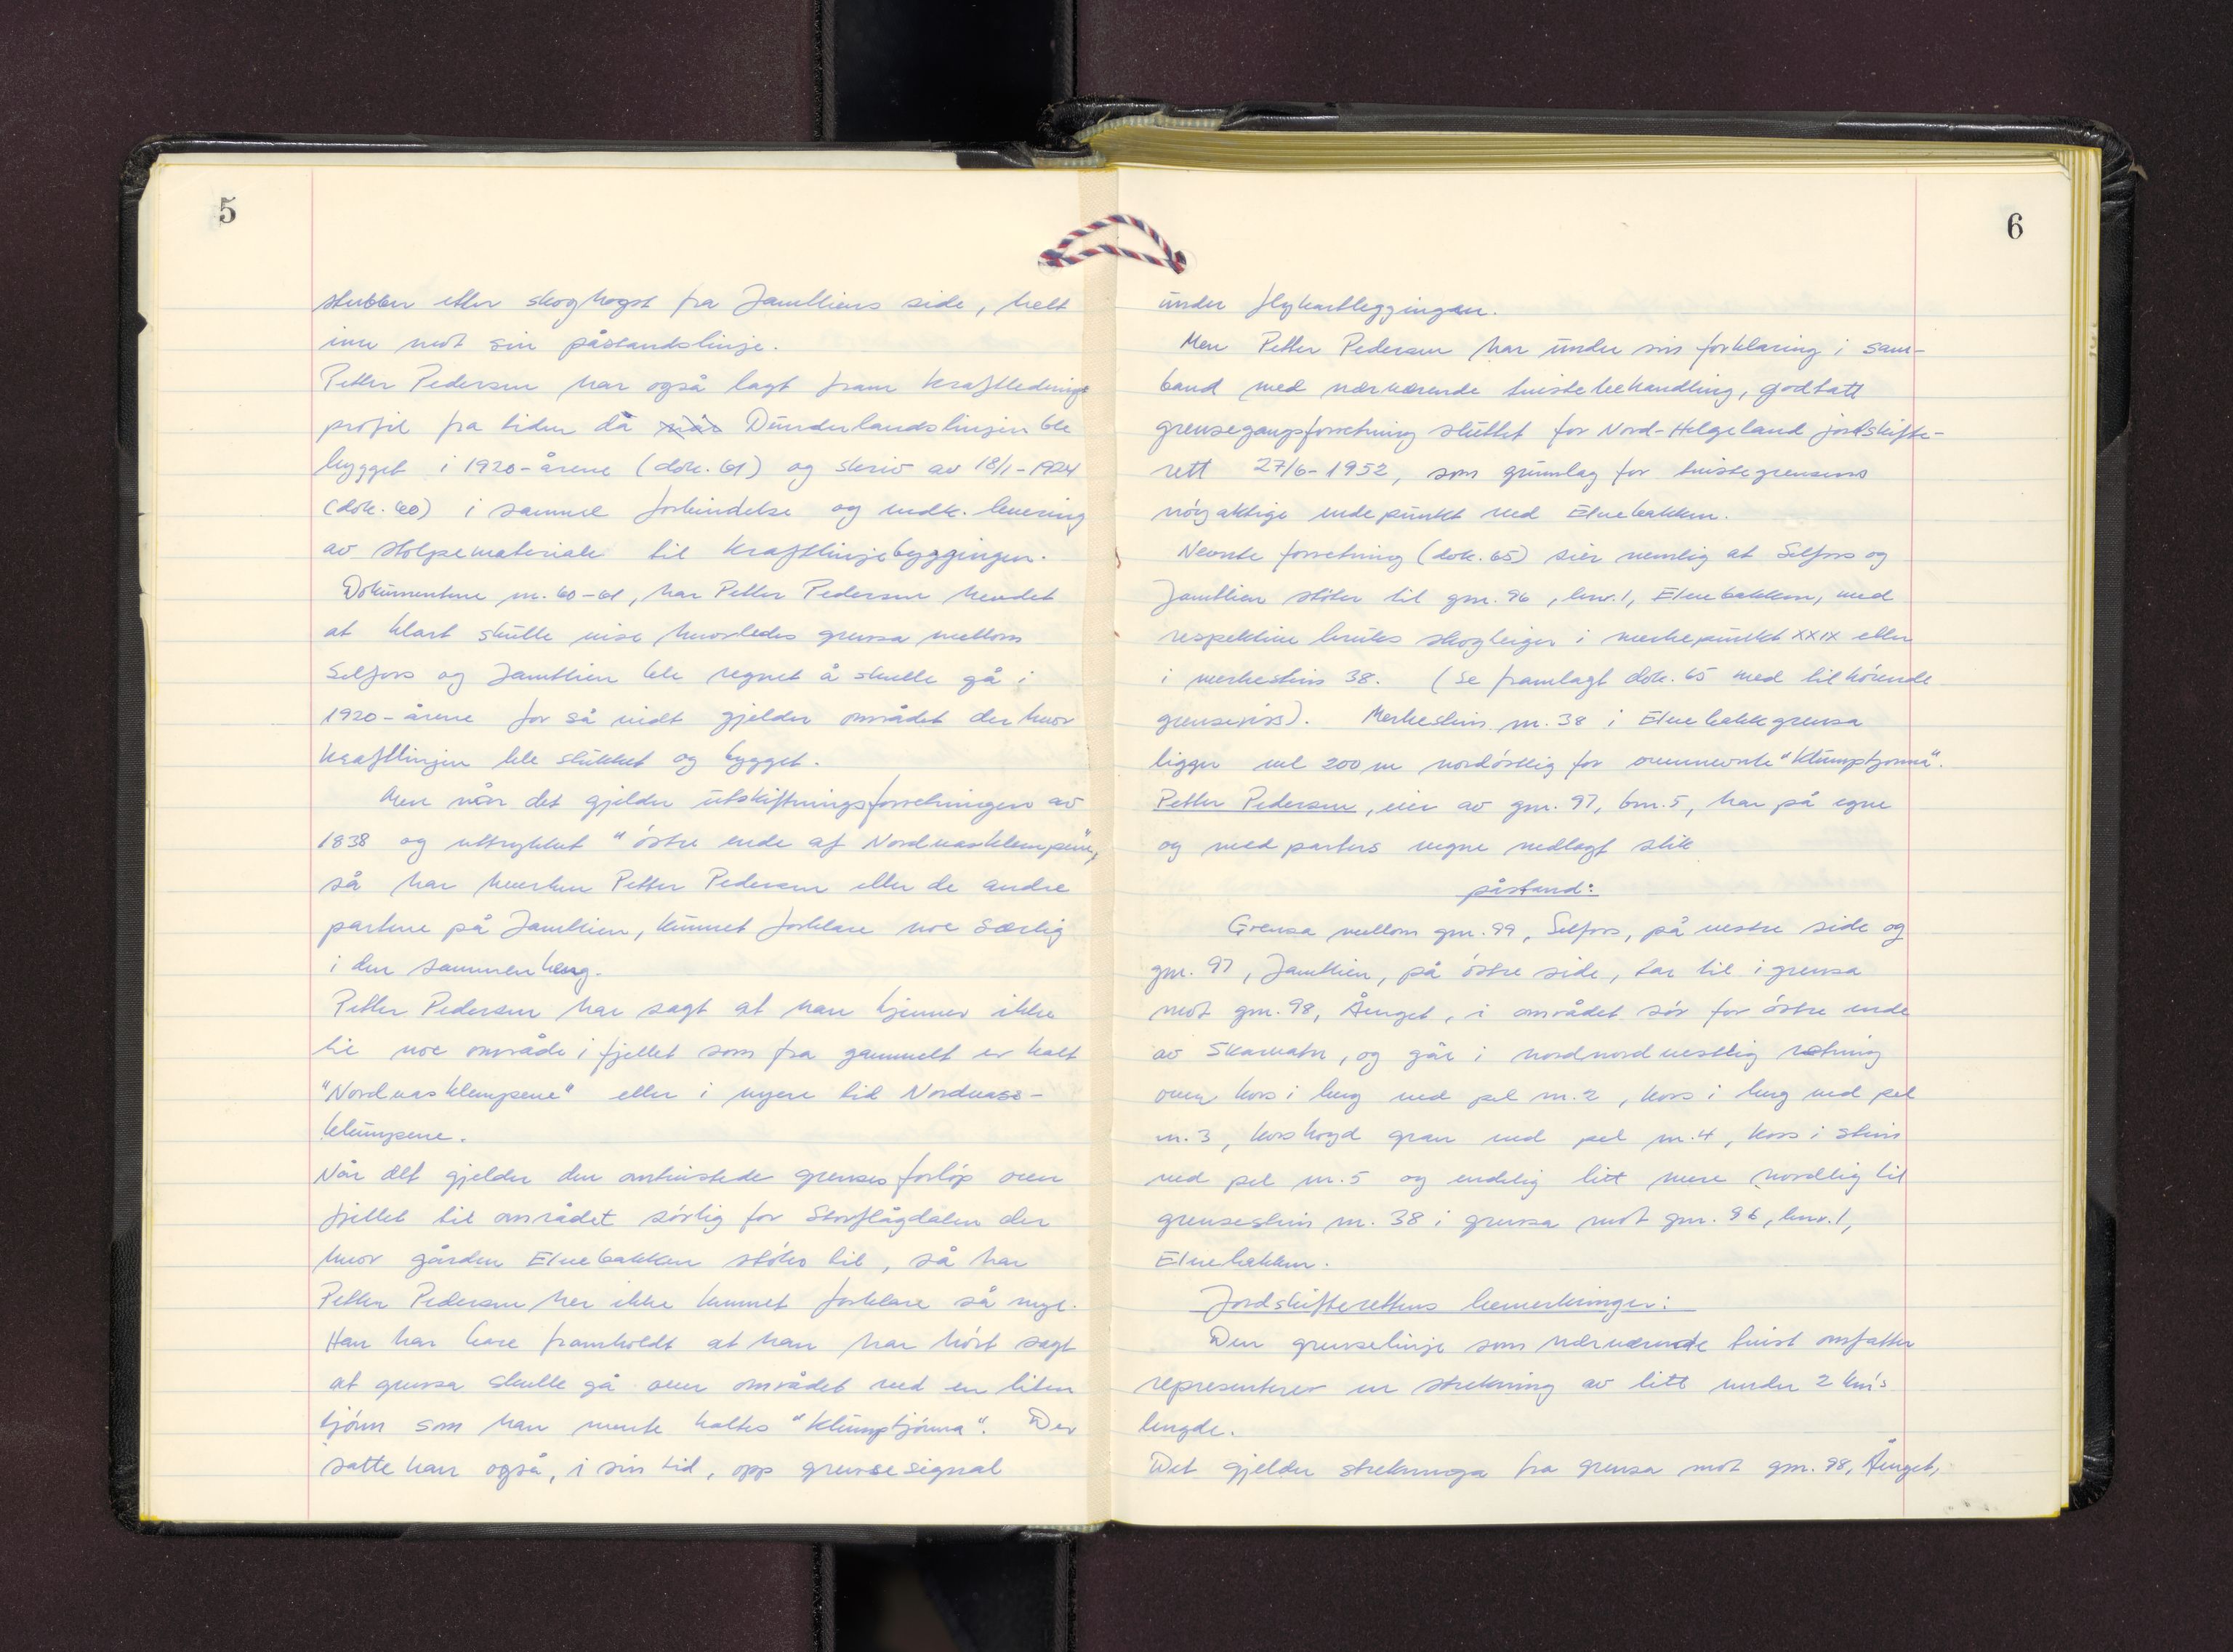 5
stubber etter skoghogst fra Jamtliens side, helt
inn mot sin påstandslinje.
Petter Pedersen har også lagt fram kraftlednings
profil fra tiden da når Dunderlandslinjen ble
bygget i 1920-årene (dok. 61) og skriv av 18/1-1924
(dok. 60) i samme forbindelse og vedk. levering
av stolpemateriale til kraftlinjebyggingen.
Dokumentene nr. 60-61, har Petter Pedersen hevdet
at klart skulle vise hvorledes grensa mellom
Selfors og Jamtlien ble regnet å skulle gå i
1920-årene for så vidt gjelder området der hvor
kraftlinjen ble stukket og bygget.
Men når det gjelder utskiftningsforretningen av
1838 og uttrykket "östre ende af Nordnasklempene",
så har hverken Petter Pedersen eller de andre
partene på Jamtlien, kunnet forklare noe særlig
i den sammenheng.
Petter Pedersen har sagt at han kjenner ikke
til noe område i fjellet som fra gammelt er kalt
"Nordnasklempene" eller i nyere tid Nordnass-
klumpene.
Når det gjelder den omtvistede grenses forløp over
fjellet til området sørlig for Storflågdalen der
hvor gården Elvebakken støter til, så har
Petter Pedersen her ikke kunnet forklare så mye.
Han har bare framholdt at han har hørt sagt
at grensa skulle gå over området ved en liten
tjønn som han mente kaltes "Klumptjønna". Der
satte han også, i sin tid, opp grensesignal
6
under flykartleggingen.
Men Petter Pedersen har under sin forklaring i sam-
band med nærværende tvistebehandling, godtatt
grensegangsforretning sluttet for Nord-Helgeland jordskifte-
rett 27/6-1952, som grunnlag for tvistegrensens
nøyaktige endepunkt ved Elvebakken.
Nevnte forretning (dok. 65) sier nemlig at Selfors og
Jamtlien støter til gnr. 96, bnr. 1, Elvebakken, med
respektive bruks skogteiger i merkepunkt XXIX eller
i merkestein 38. (Se framlagt dok. 65 med tilhørende
grenseriss). Merkestein nr. 38 i Elvebakkgrensa
ligger vel 200 m nordøstlig for ovennevnte "Klumptjønna".
Petter Pedersen, eier av gnr. 97, bnr. 5, har på egne
og med parters vegne nedlagt slik
påstand:
Grensa mellom gnr. 99, Selfors, på vestre side og
gnr. 97, Jamtlien, på østre side, tar til i grensa
mot gnr. 98, Ånget, i området sør for østre ende
av Skarvatn, og går i nordnordvestlig retning
over kors i berg ved pel nr. 2, kors i berg ved pel
nr. 3, korshogd gran ved pel nr. 4, kors i stein
ved pel nr. 5 og endelig litt mere nordlig til
grensestein nr. 38 i grensa mot gnr. 96, bnr. 1,
Elvebakken.
Jordskifterettens bemerkninger:
Den grenselinje som nærværende tvist omfatter
representerer en strekning av litt under 2 km's
lengde.
Det gjelder strekninga fra grensa mot gnr. 98, Ånget,